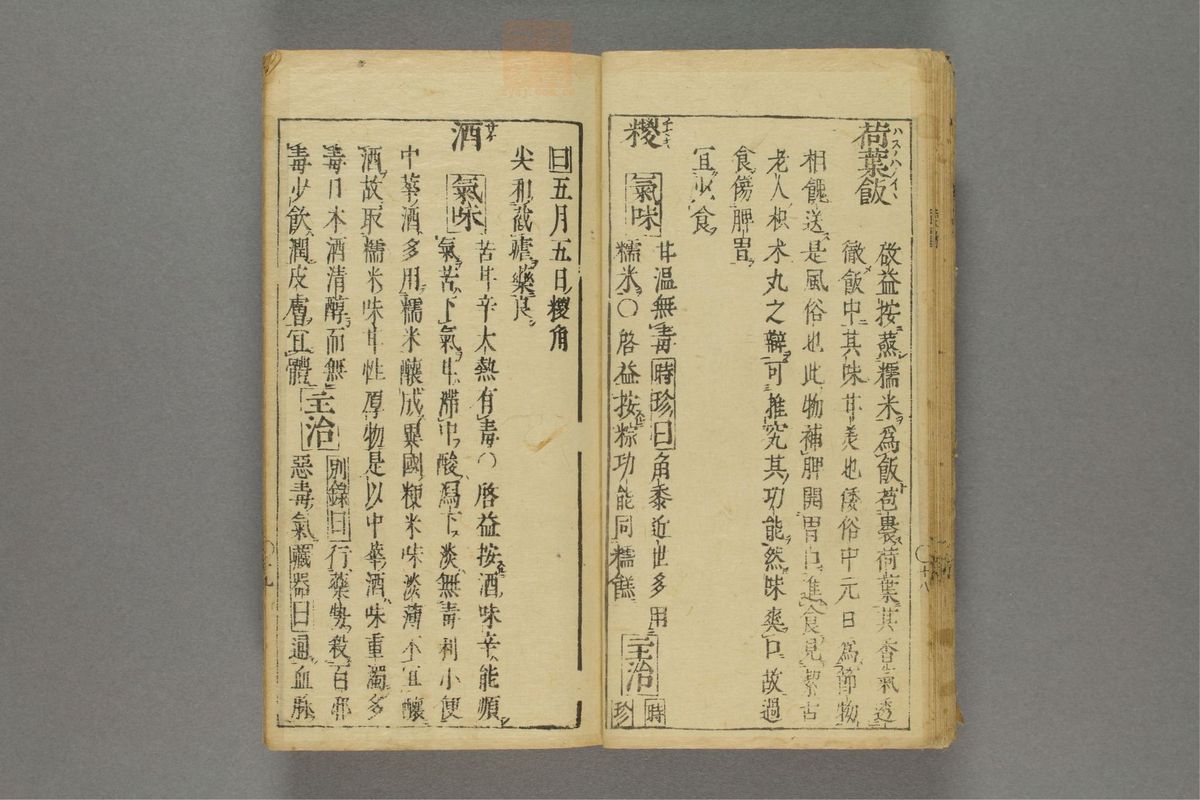 荷葉飯
啟益按蒸糯米爲飯苞裹荷葉其香氣透
徹飯中其味甘美也倭俗中元日爲節物
相餽送是風俗也此物補脾開胃口進食見潔古
老人枳朮丸之辯可推究其功能然味爽口故過
食傷脾胃
宜少食
糉 氣味 甘溫無毒時珍曰角黍近世多用
糯米〇啓益按粽功能同糯餻 主治 時
珍
曰五月五日糉角
尖和截瘧藥良
酒 氣味 苦甘辛大熱有毒〇啓益按酒味辛能順
氣苦下氣甘滯中酸瀉下淡無毒利小便
中華酒多用糯米釀成異國粳米味淡薄不宜釀
酒故取糯米味甘性厚物是以中華酒味重濁多
毒日本酒清醇而無 主治 別錄曰行藥勢殺百邪
毒少飲潤皮膚宜體 惡毒氣藏器曰通血脉